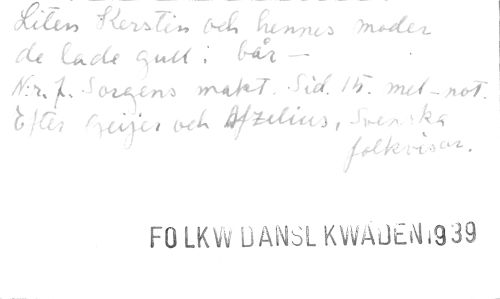 Liten Kerstin och hennes moder
de lade gull i bår —
N:r 7. Sorgens makt. Sid. 15. mel-not.
Efter Geijer och Afzelius, Svenska
folkvisor.
FOLKW DANSL KWADEN 1939